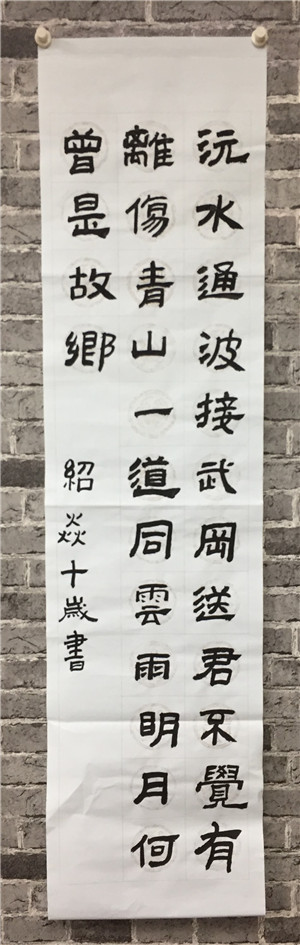 沅水通波接武岡送君不覺有
離傷青山一道同雲雨明月何
曾是故鄉
紹焱十歲書